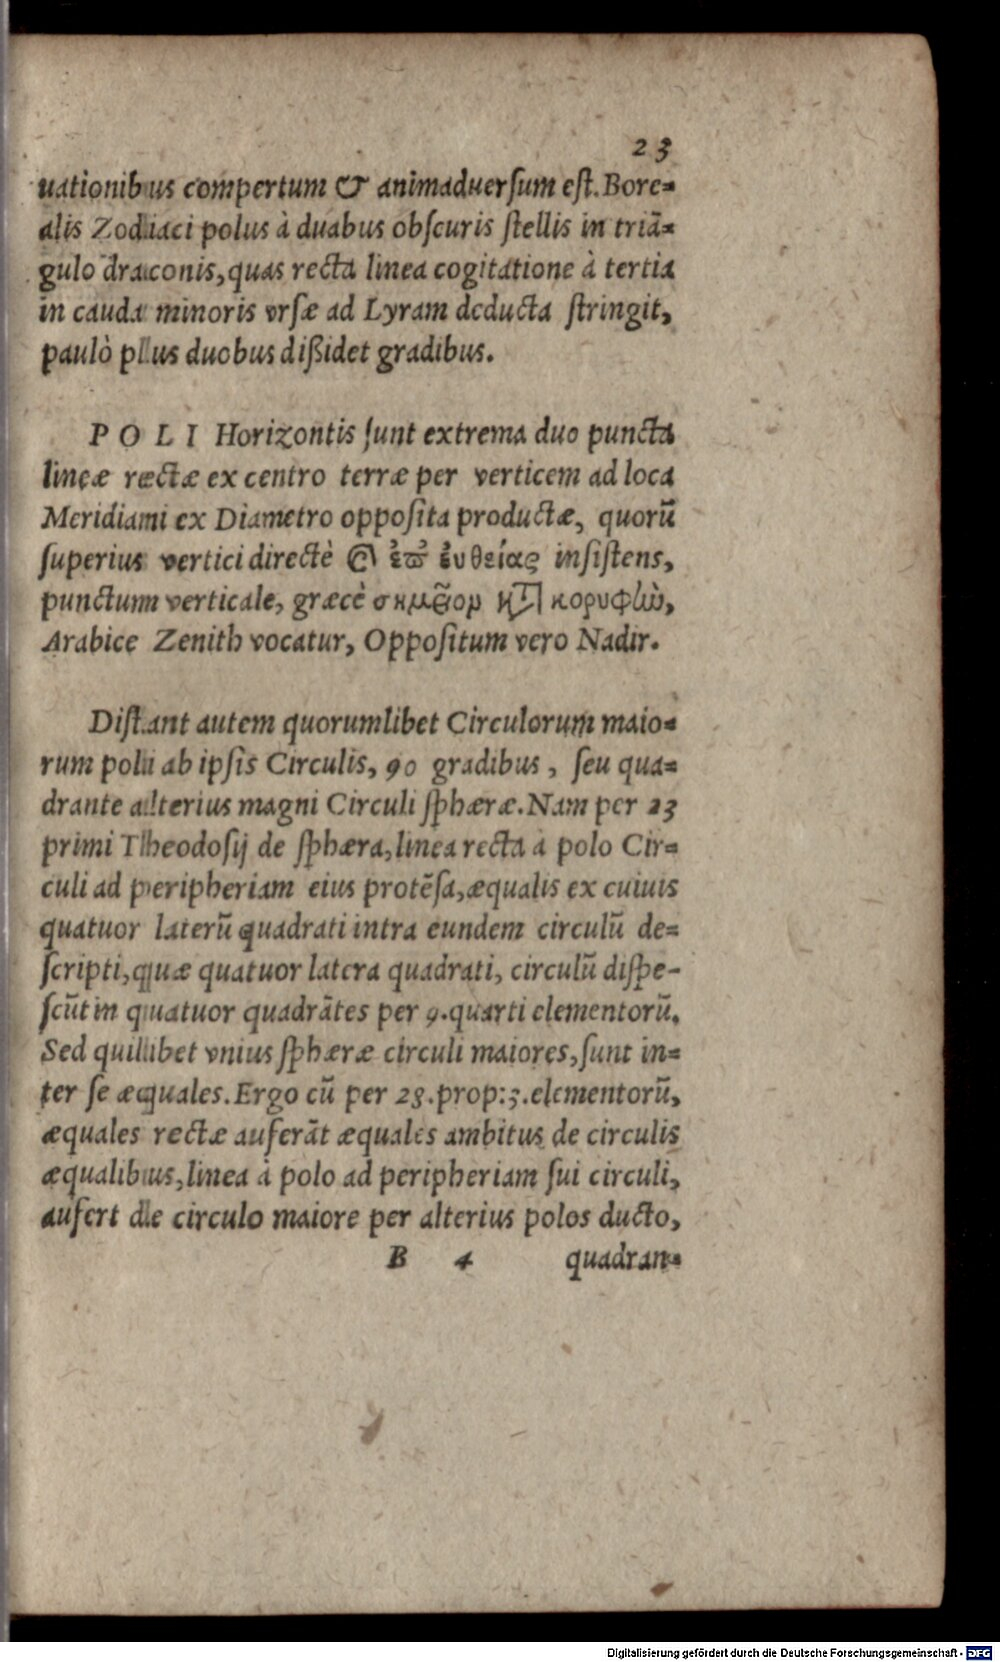 23
uationibus compertum & animaduersum est. Bore-
alis Zodiaci polus à duabus obscuris stellis in triā-
gulo draconis, quas recta linea cogitatione à tertia
in cauda minoris vrsæ ad Lyram deducta stringit,
paulò plus duobus dißidet gradibus.
POLI Horizontis sunt extrema duo puncta
lineæ rectæ ex centro terræ per verticem ad loca
Meridiami ex Diametro opposita productæ, quorū
superius vertici directè & ἐπ' ἐυθείας insistens,
punctum verticale, græcè σημεῖον κτ κορυφὼ,
Arabice Zenith vocatur, Oppositum vero Nadir.
Distant autem quorumlibet Circulorum maio-
rum poli ab ipsis Circulis, 90 gradibus, seu qua-
drante alterius magni Circuli sphæræ. Nam per 23
primi Theodosij de sphæra, linea recta à polo Cir-
culi ad peripheriam eius protēsa, æqualis ex cuiuis
quatuor laterū quadrati intra eundem circulū de-
scripti, quæ quatuor latera quadrati, circulū dispe-
scūt in quatuor quadrātes per 9. quarti elementorū.
Sed quilibet vnius sphæræ circuli maiores, sunt in-
ter se æquales. Ergo cū per 28. prop: 3. elementorū,
æquales rectæ auferāt æquales ambitus de circulis
æqualibus, linea à polo ad peripheriam sui circuli,
aufert de circulo maiore per alterius polos ducto,
B 4 quadran-
Digitalisierung gefördert durch die Deutsche Forschungsgemeinschaft - DFG